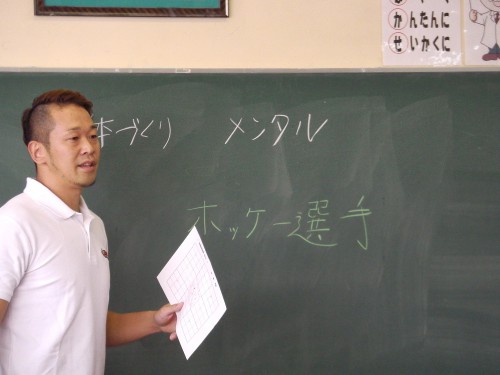 かんたんに
せいかくに
本づくり メンタル
ホッケー選手